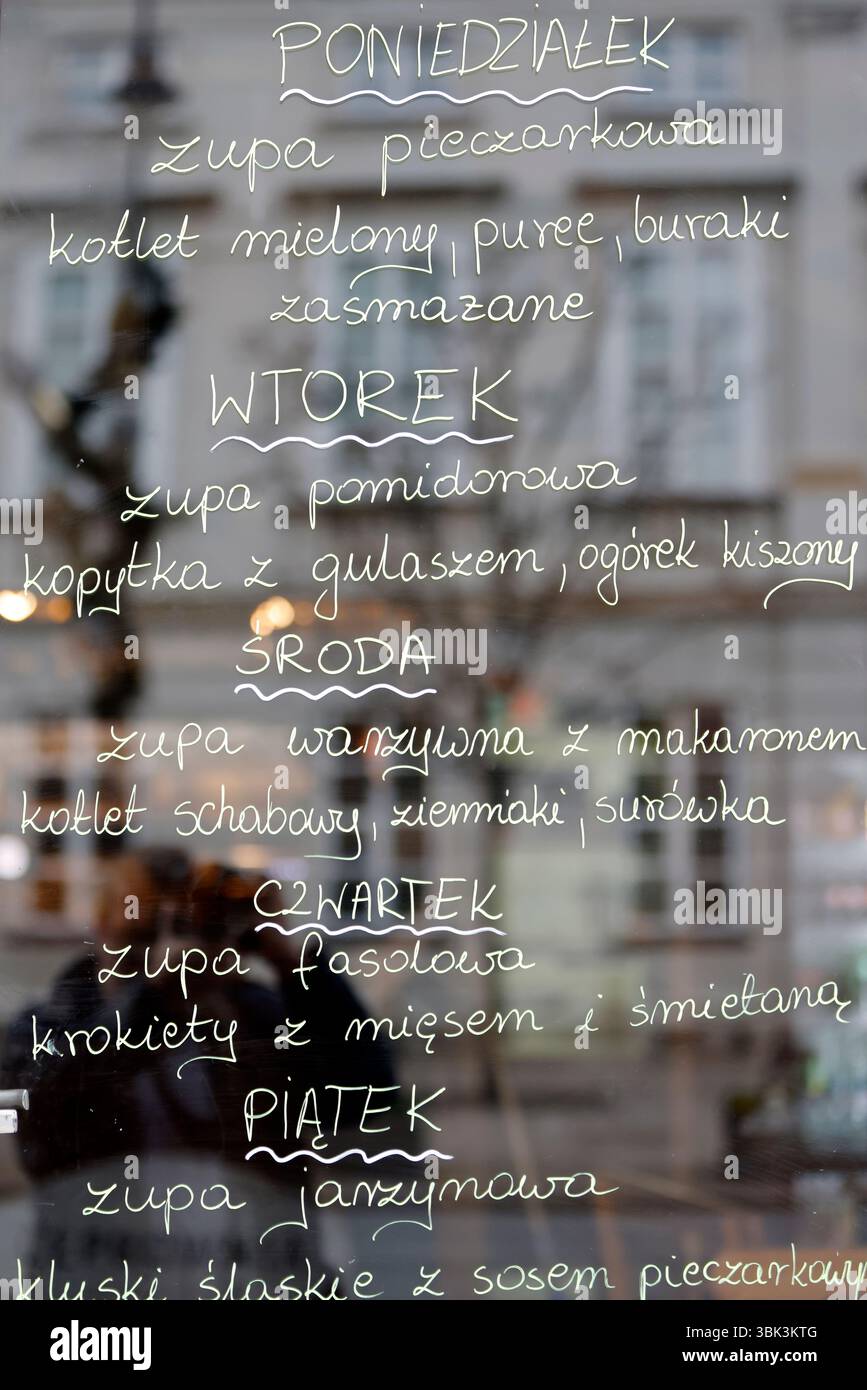 PONIEDZIAŁEK
zupa pieczarkowa
kotlet mielony, puree, buraki
zasmażane
WTOREK
zupa pomidorowa
kopytka z gulaszem, ogórek kiszony
ŚRODA
zupa warzywna z makaronem
kotlet schabowy, ziemniaki, surówka
CZWARTEK
zupa fasolowa
krokiety z mięsem i śmietaną
PIĄTEK
zupa jarzynowa
kluski śląskie z sosem pieczarkowy
alamy
Image ID: 3BK3KTG
www.alamy.com